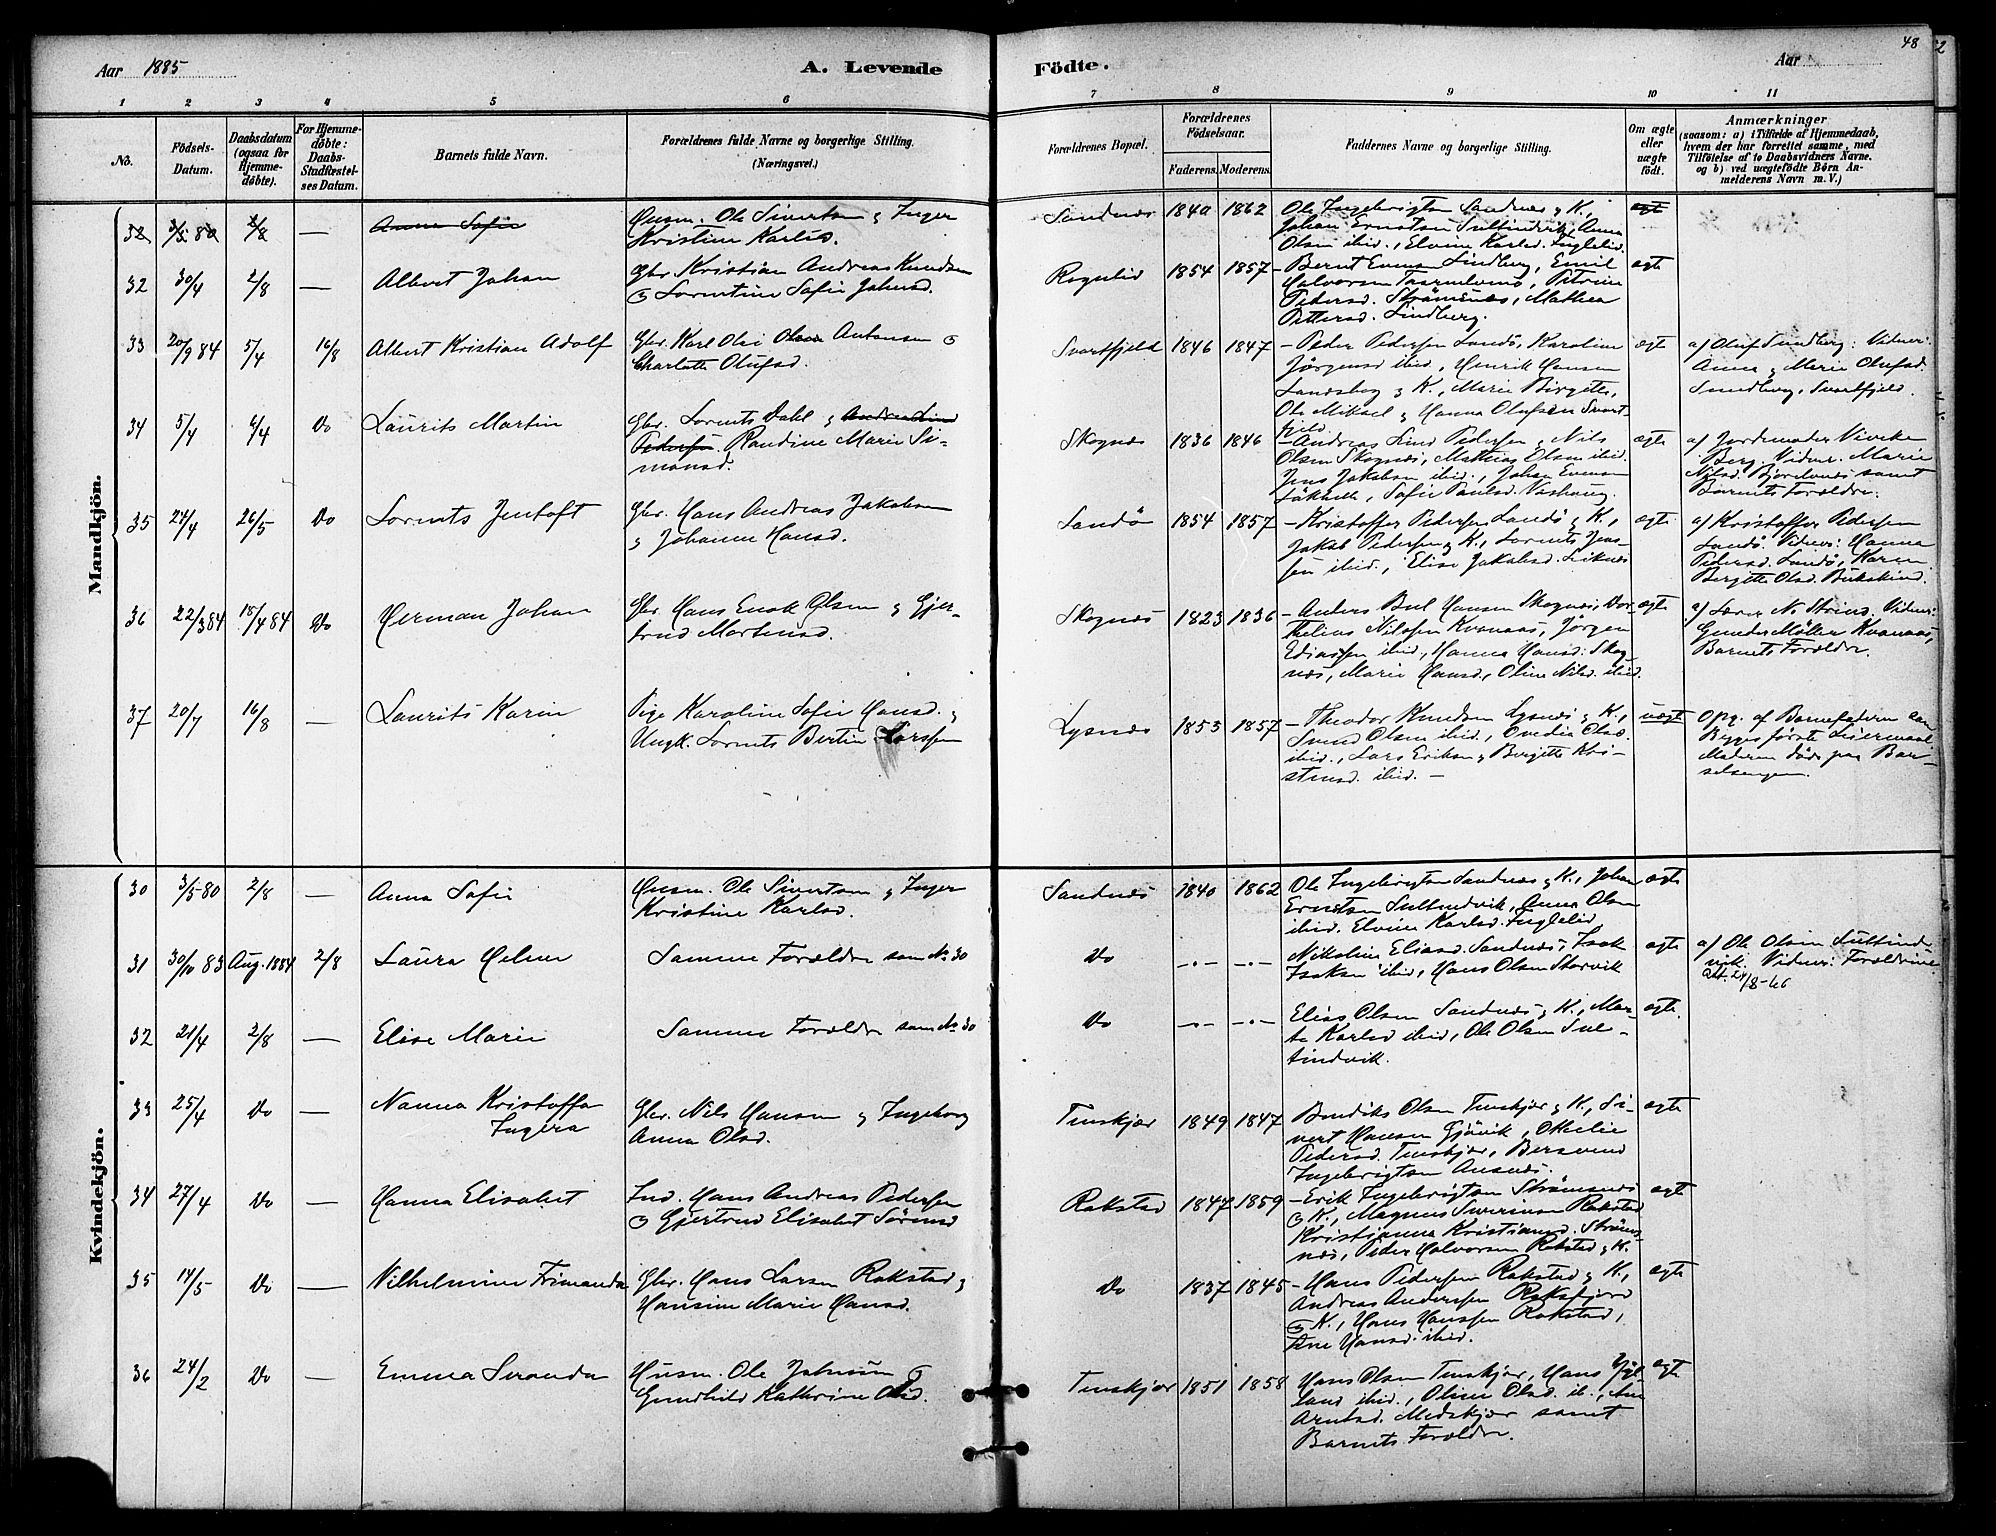 48
Aar 1885
A. Levende
Födte.
Aar
1 2 3 4 5 6 7 8 9 10 11
No.
Födsels-
Datum.
Daabsdatum
(ogsaa for
Hjemme-
döbte).
For Hjemme-
döbte:
Daabs-
Stadfæstel-
ses Datum.
Barnets fulde Navn.
Forældrenes fulde Navne og borgerlige Stilling.
(Næringsvei.)
Forældrenes Bopæl.
Forældrenes
Födselsaar.
Faderens. Moderens.
Faddernes Navne og borgerlige Stilling.
Om ægte
eller
uægte
födt.
Anmærkninger
(saasom: a) i Tilfælde af Hjemmedaab,
hvem der har forrettet samme, med
Tilföielse af to Daabsvidners Navne.
og b) ved uægtefödte Börn An-
melderens Navn m. V.)
Mandkjön.
32 3/5 80 2/8 — Anna Sofie
Husm. Ole Sivertsen & Inger
Kristine Karlsd.
Sandnæs 1840 1862
Ole Ingebrigtsen Sandnæs & K.,
Johan Ernstsen Sultindvik, Anna
Olsen ibid., Elvine Karlsd. Fuglelid
ægte
32 30/4 2/8 — Albert Johan
Gbr. Kristian Andreas Knudsen
& Lorentine Sofie Johnsd.
Rognlid 1854 1857
— Bernt Evensen Lindberg, Emil
Halvorsen, Petrine
Pedersd. Strömsnæs, Mathea
Pettersd. Lindberg.
ægte
33 20/9 84 5/4 16/8 Albert Kristian Adolf
Gbr. Karl Olai Olsen Antonsen &
Charlotte Olufsd.
Svartfjeld 1846 1847
— Peder Pedersen Sandö, Karoline
Jörgensd ibid., Henrik Hansen
& K., Marie Birgitte,
Ole Mikael & Hanna Olufsen Svart-
fjeld
ægte
a) Oluf Sundberg: Vidner:
Anna & Marie Olufsd.
Sundberg, Svartfjeld.
34 5/4 6/4 Do Laurits Martin
Gbr. Lorents Dahl & Andreas Lind
Pedersen. Randine Marie Si-
monsd.
Skognæs 1836 1846
— Andreas Lind Pedersen & Nils
Olsen Skognæs, Mathias Olsen ibid.
Jens Jakobsen ibid., Johan Evensen
Sofie Paulsd.
ægte
a) Jordemoder Viveke
Berg. Vidner: Marie
Nilsd. Bjorelvnæs samt
Barnets Forældre.
35 24/4 26/5 Do Lorents Jentoft
Gbr. Hans Andreas Jakobsen
& Johanna Hansd.
Sandö 1854 1857
— Kristoffer Pedersen Sandö & K.,
Jakob Pedersen & K., Lorents Jens-
sen ibid., Elise Jakobsd. Leiknes
ægte
a) Kristoffer Pedersen
Sandö. Vidner: Hanna
Pedersd. Sandö, Karen
Bergitte Olsd. Bukskind.
36 22/3 84 15/4 84 Do Herman Johan
Gbr. Hans Enok Olsen & Gjer-
trud Martensd.
Skognæs 1823 1836
— Anders Bul Hansen Skognæs, Dor-
thelius Nilssen Kvanaas, Jörgen
Ediassen ibid., Hanna Hansd. Skog-
næs, Marie Hansd., Oline Nilsd. ibid.
ægte
a) Lærer N. Strind. Vidner:
Gunder Möller Kvanaas,
Barnets Forældre.
37 20/7 16/8 — Laurits Karin
Pige Karoline Sofie Hansd. &
Ungk. Lorents Bertin Larssen
Lysnæs 1853 1857
— Theodor Knudsen Lysnæs & K.,
Svend Olsen ibid., Ovedia Olsd.
ibid., Lars Eriksen & Bergitte Kri-
stensd. ibid. —
uægte
Opg. af Barnefaderen
Begges förste Leiermaal
Moderen döde paa Bar-
selsengen.
Kvindekjön.
30 3/5 80 2/8 — Anna Sofie
Husm. Ole Sivertsen & Inger
Kristine Karlsd.
Sandnæs 1840 1862
Ole Ingebrigtsen Sandnæs & K., Johan
Ernstsen Sultindvik, Anna Olsen
ibid. Elvine Karlsd. Fuglelid
ægte
31 30/10 83 Aug. 1884 2/8 Laura Helene
Samme Forældre som No 30
Do —.— —.—
Nikoline Eliasd. Sandnæs, Isak
Isaksen ibid, Hans Olsen Storvik
ægte
a) Ole Olsen Sultind-
vik. Vidner: Forældrene
Att. 24/8-66
32 21/4 2/8 — Elise Marie
Samme Forældre som No 30
Do —.— —.—
Elias Olsen Sandnæs & K., Mar-
te Karlsd ibid, Ole Olsen Sul-
tindvik.
ægte.
33 25/4 Do — Nanna Kristoffa
Ingera
Gbr. Nils Hansen & Ingeborg
Anna Olsd.
Tennskjær 1849 1847
Bendiks Olsen Tennskjær & K., Si-
vert Hansen Gjövik, Ottelie
Pedersd. Tennskjær, Bersvend
Ingebrigtsen Ansnæs.
ægte
34 27/4 Do — Hanna Elisabet
Ind. Hans Andreas Pedersen
& Gjertrud Elisabet Sörensd
Rakstad 1847 1859
— Erik Ingebrigtsen Strömsnæs
& K., Magnus Sivertsen Rakstad
Kristianna Kristiansd. Ströms-
næs, Peder Halvorsen Rakstad & K.
ægte
35 14/5 Do — Vilhelmine Frimanda
Gbr. Hans Larsen Rakstad &
Hansine Marie Hansd.
Do 1837 1845
— Hans Pedersen Rakstad & K.,
Andreas Anderssen Raksfjord
& K., Hans Hanssen Rakstad,
Ane Hansd. ibid.
ægte
36 24/2 Do — Emma Seranda
Husm. Ole Johnsen &
Gunhild Kathrine Olsd.
Tennskjær 1851 1858
Hans Olsen Tennskjær, Hans
ibid., Oline Olsd. ib.,
Arntsd. Medskjær samt
Barnets Forældre.
ægte